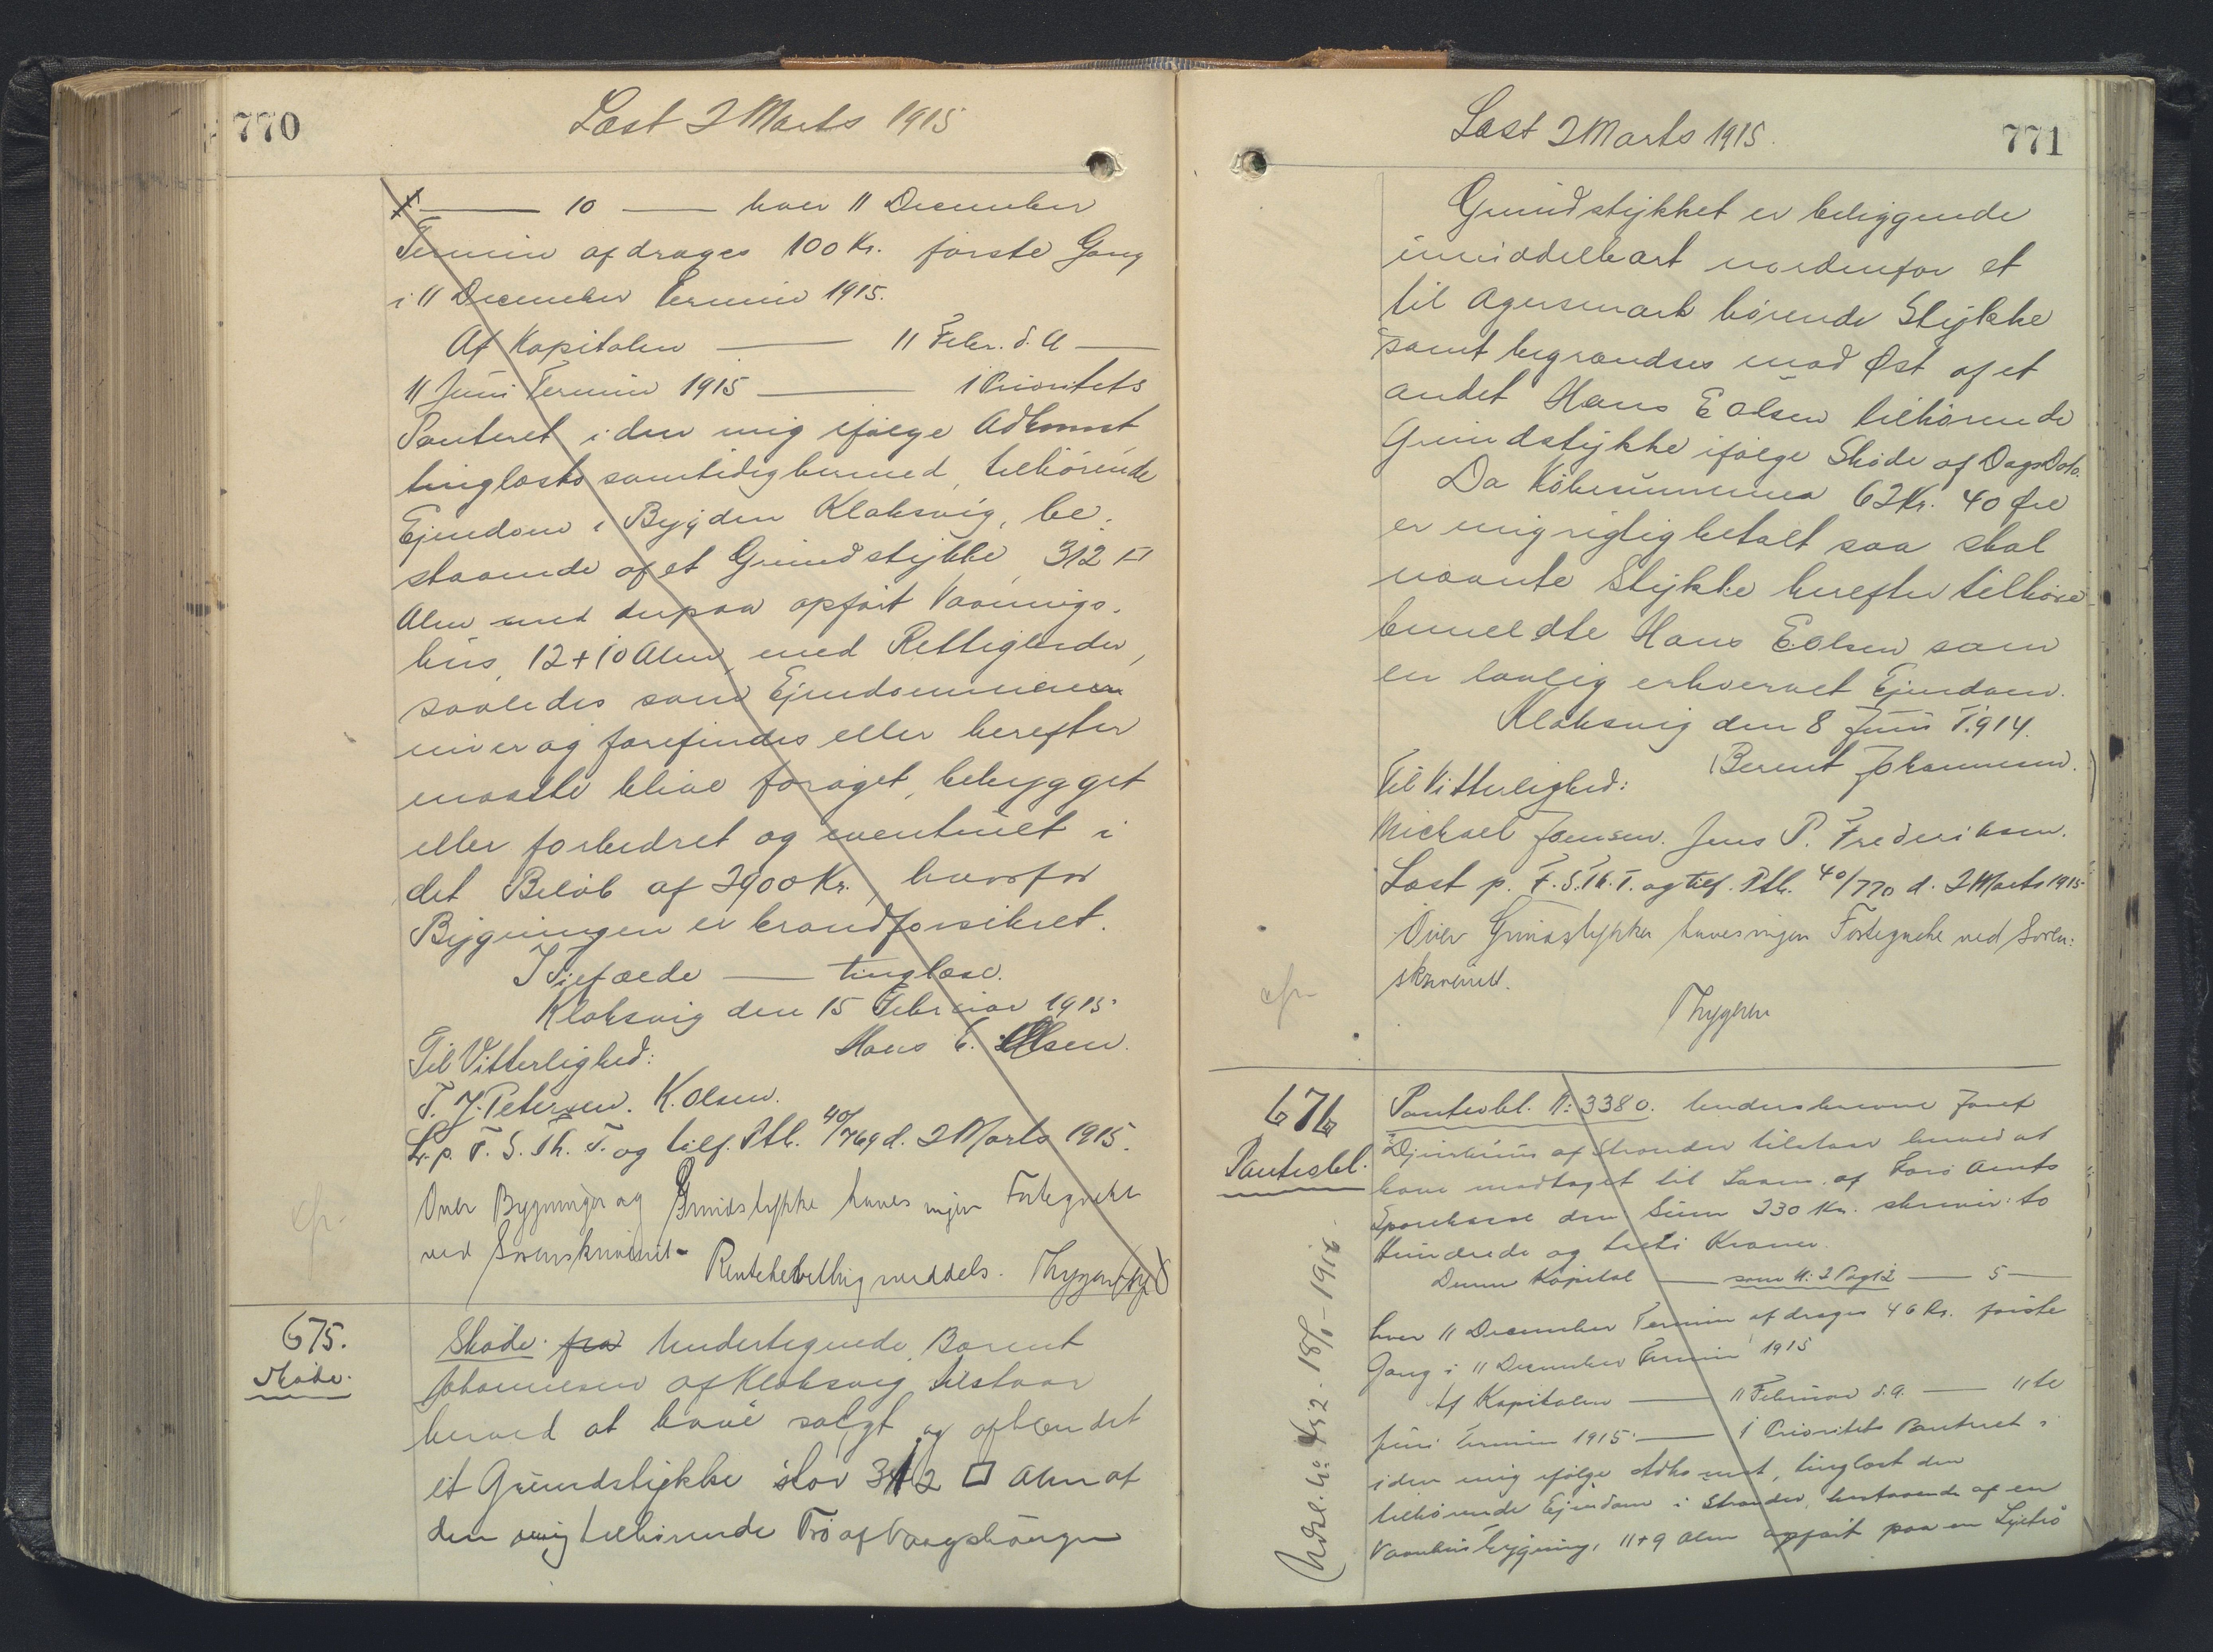 770
Læst 2 Marts 1915
10 hver 11 December
Termin afdrages 100 Kr. første Gang
i 11 December Termin 1915.
Af Kapitalen 11 Febr. d. A
11 Juni Termin 1915 1 Prioritets
Panteret i den mig ifølge Adkomst
tinglæst samtidig hermed, tilhørende
Ejendom i Bygden Klaksvig, be-
staaende af et Grundstykke, 312 □
Alen med derpaa opført Vaanings-
hus, 12+10 Alen, med Rettigheder,
saaledes som Ejendommen
nu er og forefindes eller herefter
maatte blive forøget, bebygget
eller forbedret og eventuelt i
det Beløb af 2900 Kr., hvorfor
Bygningen er brandforsikret.
I Tilfælde tinglæse.
Klaksvig den 15 Februar 1915.
Til Vitterlighed: Hans E. Olsen.
T. J. Petersen. K. Olsen.
L. p. F. S. Th. T. og tilf. Ptb. 40/769 d. 2 Marts 1915.
Over Bygninger og Grundstykke haves ingen Fortegnelse
ved Sorenskriveriet-
Rentebevilling meddels. Thygesen
cfr.
675.
Skøde.
Skøde. fra Undertegnede, Barent
Johannesen af Klaksvig tilstaar
herved at have solgt og afhændet
et Grundstykke stor 312 □ Alen af
den mig tilhørende Trø af Vaagshaugen
Læst 2 Marts 1915.
771
Grundstykket er beliggende
umiddelbart nordenfor et
til Agersmark hørende Stykke
samt begrændses mod Øst af et
andet Hans E Olsen tilhørende
Grundstykke ifølge Skøde af Dags Dato.
Da Købesummen 62 Kr. 40 Øre
er mig rigtig betalt saa skal
nævnte Stykke herefter tilhøre
bemeldte Hans E. Olsen som
en lovlig erhvervet Ejendom.
Klaksvig den 8 Juni 1914.
Berent Johannesen.
Til Vitterlighed:
Michael Joensen. Jens P. Frederiksen.
Læst p. F. S. Th. T. og tilf. Ptb. 40/770 d. 2 Marts 1915-
Over Grundstykker haves ingen Fortegnelse ved Soren-
skriveriet.
Thygesen
cfr
676
Pantesbl.
Pantesbl. N: 3380. Underskrevne
af Strander tilstaar herved at
have modtaget til Laans af Færø Amts
Sparekasse den Sum 230 Kr. skriver: to
Hundrede og treti Kroner.
Denne Kapital som N: 2 Pag 12 5
hver 11 December Termin afdrages 46 Kr. første
Gang i 11 December Termin 1915
Af Kapitalen 11 Februar d. A. 11te
Juni Termin 1915 1 Prioritets Panteret i
i den mig ifølge Adkomst, tinglæst den
tilhørende Ejendom i Strander, bestaaende af en
Vaanhusbygning, 11+9 Alen opført paa en